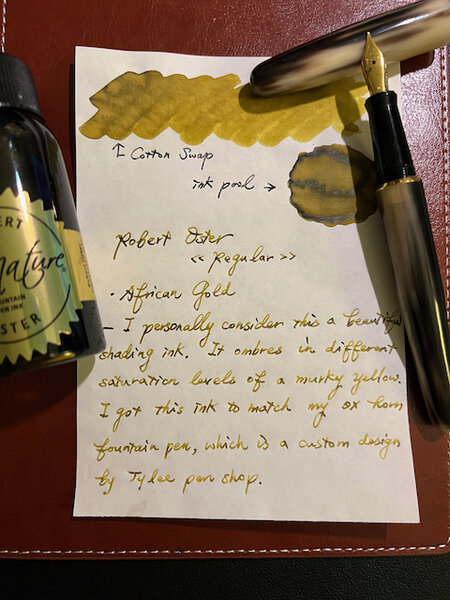 ↑ Cotton Swap
ink pool →
Robert Oster
<< Regular >>
· African Gold
– I personally consider this a beautiful
shading ink. It ombres in different
saturation levels of a murky yellow.
I got this ink to match my ox horn
fountain pen, which is a custom design
by Tylee pen shop.
ERT
nature
OUNTAIN
EN INK
OSTER